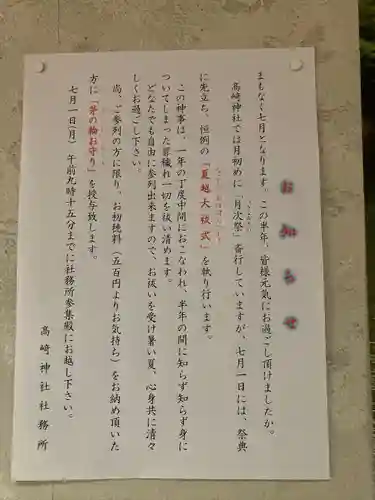 お知らせ
まもなく七月となります。この半年、皆様元気にお過ごし頂けましたか。
高崎神社では月初めに「月次祭」斎行していますが、七月一日には、祭典
に先立ち、恒例の「夏越大祓式」を執り行います。
この神事は、一年の丁度中間におこなわれ、半年の間に知らず知らず身に
ついてしまった罪穢れ一切を祓い清めます。
どなたでも自由に参列出来ますので、お祓いを受け暑い夏、心身共に清々
しくお過ごし下さい。
尚、ご参列の方に限り、お初穂料（五百円よりお気持ち）をお納め頂いた
方に「茅の輪お守り」を授与致します。
七月一日(月) 午前九時十五分までに社務所参集殿にお越し下さい。
高崎神社社務所